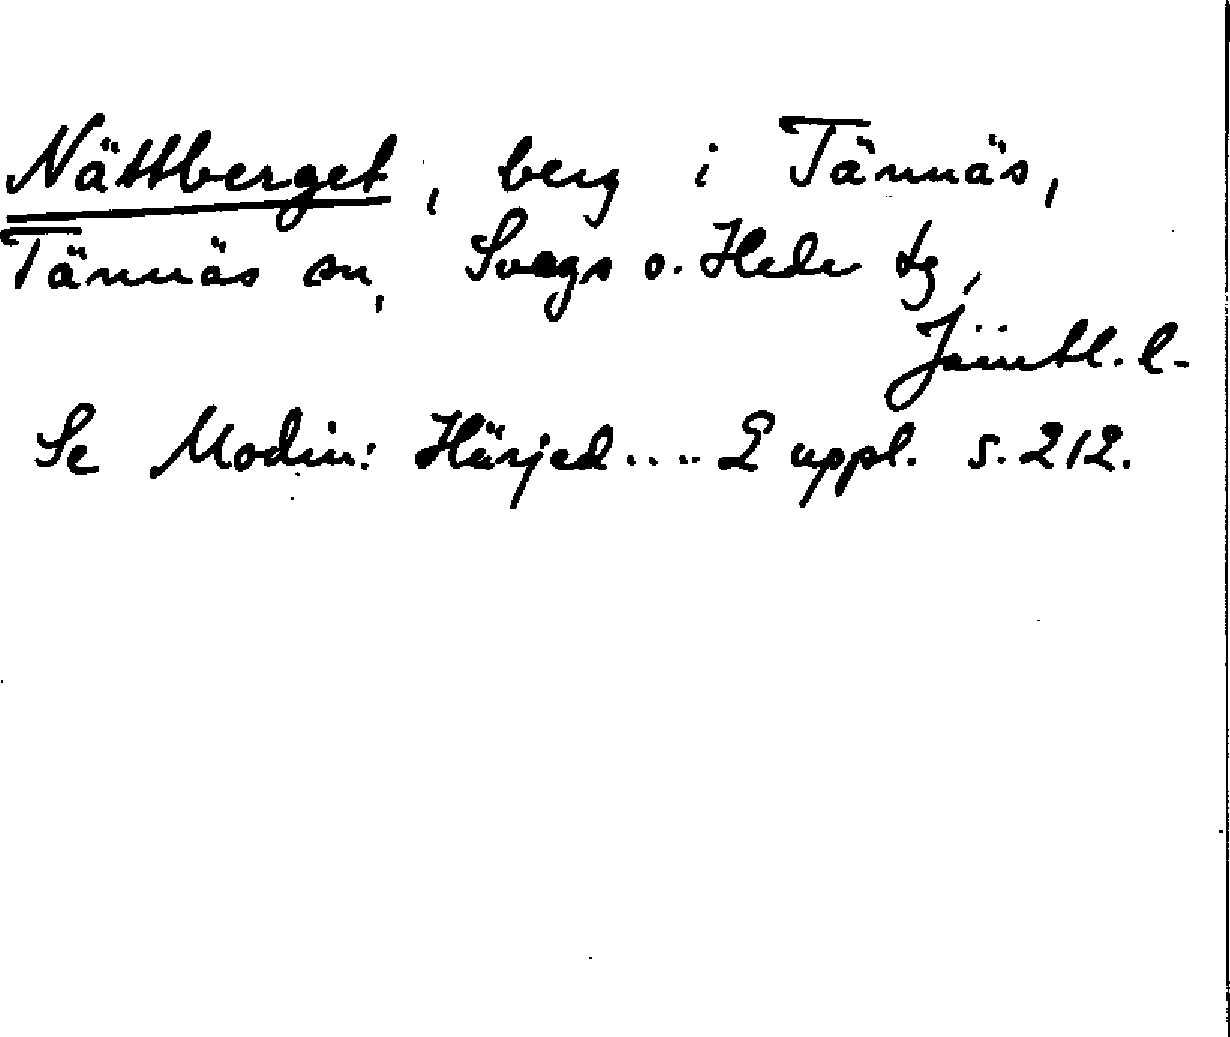 Nättberget, berg i Tännäs,
Tännäs sn, Svegs o. Hede tg,
Jämtl. l.
Se Modin: Härjed.... 2 uppl. s. 212.